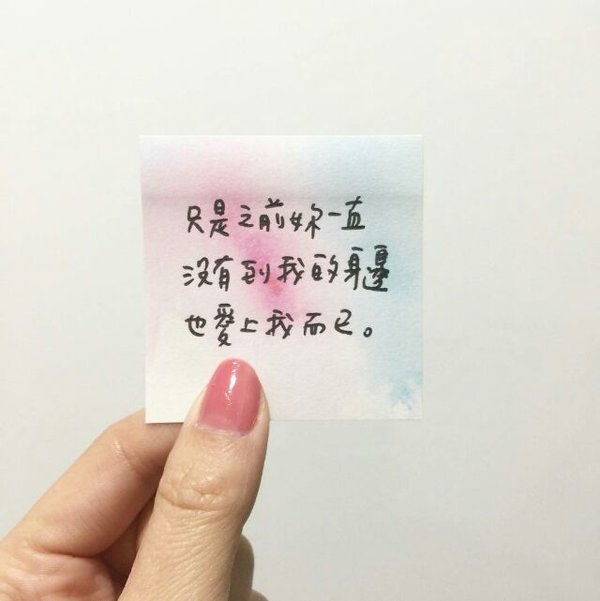 只是之前妳一直
沒有到我的身邊
也愛上我而已。